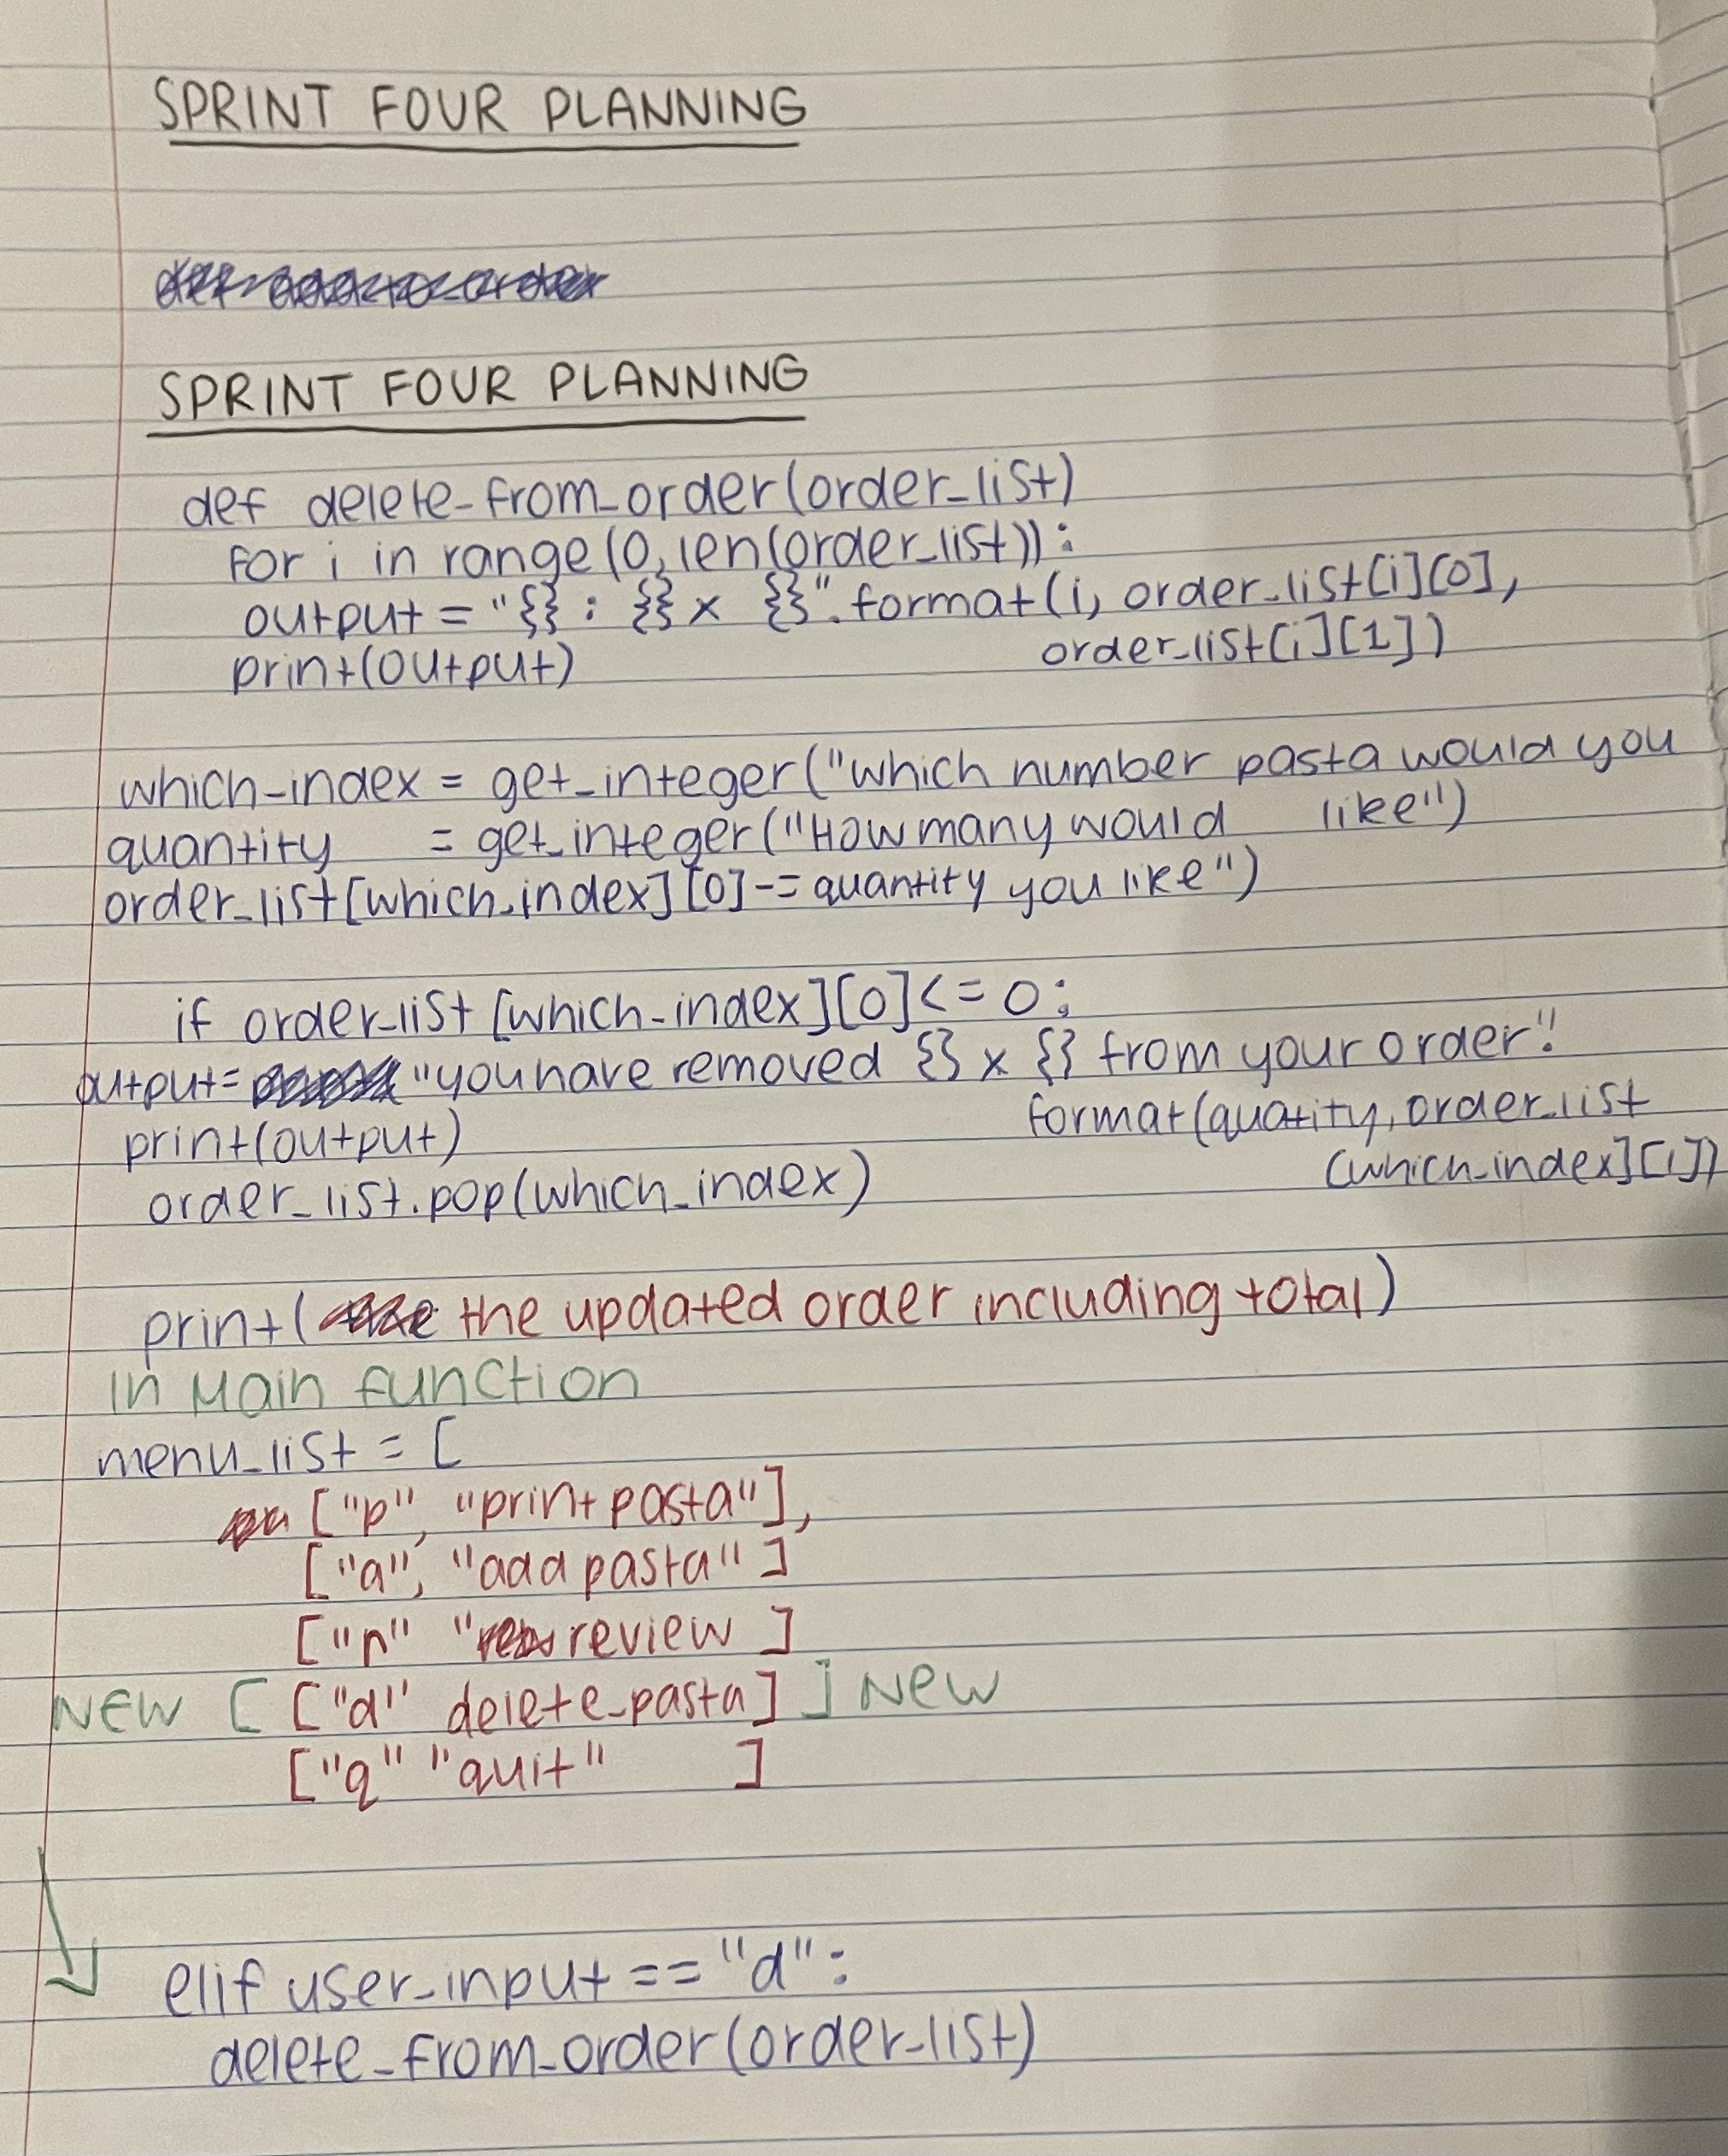 SPRINT FOUR PLANNING
SPRINT FOUR PLANNING
def delete_from_order(order_list)
for i in range(0,len(order_list)):
output = "{} : {} x {}".format(i, order_list[i][0],
order_list[i][1])
print(output)
which_index = get_integer("which number pasta would you
like")
quantity = get_integer("How many would
you like")
order_list[which_index][0] -= quantity
if order_list[which_index][0] <= 0:
output= "you have removed {} x {} from your order".
format(quatity, order_list
(which_index][i])
print(output)
order_list.pop(which_index)
print( the updated order including total)
In Main function
menu_list = [
["p", "print pasta"],
["a", "add pasta" ]
["r" "review ]
NEW [ ["d" delete_pasta] ] NEW
["q" "quit" ]
elif user_input == "d":
delete_from_order(order_list)